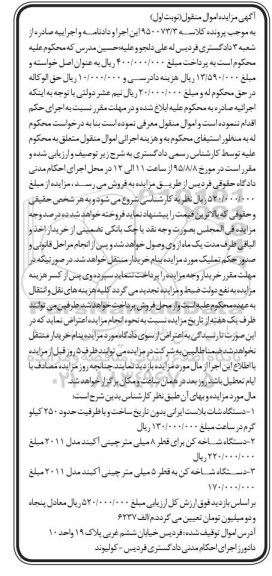 آگهی مزایده اموال منقول (نوبت اول)
به موجب پرونده کلاسه ۹۵۰۰۷۳/۳ این اجرا و دادنامه و اجراییه صادره از
شعبه ۳ دادگستری فردیس له علی دلجو و علیه حسین مدرس که محکوم علیه
محکوم است به پرداخت مبلغ ۴۰۰/۰۰۰/۰۰۰ ریال به عنوان اصل خواسته و
مبلغ ۱۳/۵۹۰/۰۰۰ ریال هزینه دادرسی و ۱۰/۰۰۰/۰۰۰ ریال حق الوکاله
در حق محکوم له و مبلغ ۲۰/۰۰۰/۰۰۰ ریال نیم عشر دولتی با توجه به اینکه
اجرائیه صادره به محکوم علیه ابلاغ شده و در مهلت مقرر نسبت به اجرای حکم
اقدام ننموده است و اموال منقول معرفی نموده است بنا به درخواست محکوم
له به منظور استیفای محکوم به و هزینه اجرائی اموال منقول متعلق به محکوم
علیه توسط کارشناس رسمی دادگستری به شرح زیر توصیف و ارزیابی شده و
مقرر است در مورخ ۹۵/۸/۸ از ساعت ۱۱ الی ۱۲ در محل اجرای احکام مدنی
دادگاه حقوقی فردیس از طریق مزایده به فروش می رسد، مزایده از مبلغ
۵۲۰/۰۰۰/۰۰۰ ریال نظریه کارشناسی شروع می شود و به هر شخص حقیقی
و حقوقی که بالاترین قیمت را پیشنهاد نماید فروخته خواهد شد ده درصد وجه
مزایده فی المجلس بصورت وجه نقد یا چک بانکی تضمینی از خریدار اخذ و
الباقی ظرف مدت یک ماه از وی وصول خواهد شد و پس از انجام مراحل قانونی و
صدور حکم تملیک مورد مزایده بنام خریدار منتقل خواهد شد. در صورتیکه در
مهلت مقرر خریدار وجه مزایده را پرداخت ننماید سپرده وی پس از کسر هزینه
مزایده به نفع دولت ضبط و مزایده تجدید می گردد کلیه هزینه های نقل و انتقال
به عهده محکوم علیه است و از محل فروش پرداخت خواهد شد طرفین می توانند
ظرف یک هفته از تاریخ مزایده نسبت به نحوه انجام مزایده اعتراض نمایند که در
این صورت تا رسیدگی به اعتراض از سوی دادگاه مورد مزایده بنام خریدار منتقل
نخواهد شد ضمنا طالبین به شرکت در مزایده می توانند ظرف ۵ روز قبل از مزایده
با اطلاع این اجرا از مال مورد مزایده بازدید نمایند چنانچه روز مزایده مصادف با
ایام تعطیل باشد روز بعد در همان ساعت و مکان برگزار خواهد شد.
مال مورد مزایده و بهای آن طبق نظر کارشناس بدین شرح است:
۱-دستگاه شات بلاست ایرانی بدون تاریخ ساخت و با ظرفیت حدود ۲۵۰ کیلو
گرم در ساعت مبلغ ۱۳۰/۰۰۰/۰۰۰ ریال
۲-دستگاه شاخه کن برای قطر ۸ میلی متر چینی آکبند مدل ۲۰۱۱ مبلغ
۲۲۰/۰۰۰/۰۰۰ ریال
۳-دستگاه شاخه کن به قطر ۵ میلی متر چینی آکبند مدل ۲۰۱۱ مبلغ
۱۷۰/۰۰۰/۰۰۰
بر اساس بازدید فوق ارزش کل ارزیابی مبلغ ۵۲۰/۰۰۰/۰۰۰ ریال معادل پنجاه
و دو میلیون تومان تعیین می گردد م الف ۶۲۳۷
آدرس اموال توقیف شده: فردیس خیابان ششم غربی پلاک ۱۹ واحد ۱۰
دادورز اجرای احکام مدنی دادگستری فردیس - کولیوند